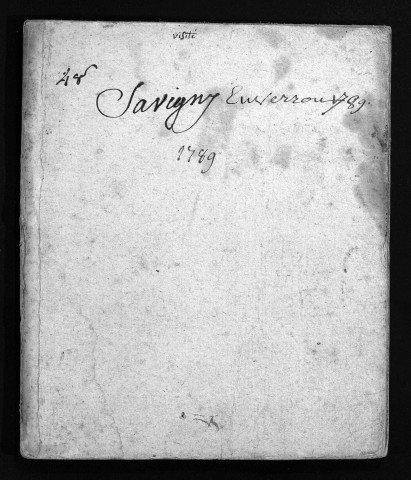 visité
48
Savigny En verron 1789.
1789